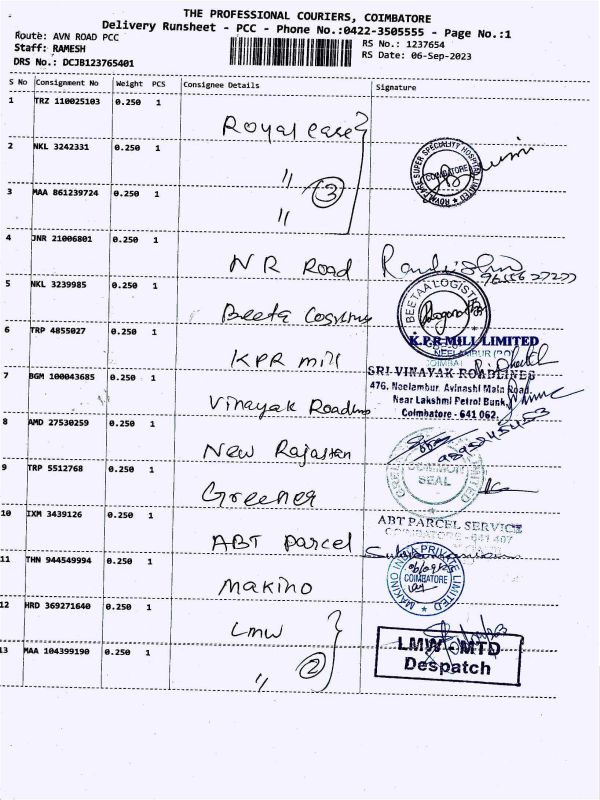 THE PROFESSIONAL COURIERS, COIMBATORE
Delivery Runsheet - PCC - Phone No.:0422-3505555 - Page No.:1
Route: AVN ROAD PCC
RS No.: 1237654
Staff: RAMESH
RS Date: 06-Sep-2023
DRS No.: DCJB123765401
S No Consignment No Weight PCS Consignee Details Signature
1 TRZ 110025103 0.250 1 Royal care
2 NKL 3242331 0.250 1 " 3
ROYAL CARE SUPER SPECIALITY HOSPITAL LIMITED COIMBATORE
3 MAA 861239724 0.250 1 "
4 JNR 21006801 0.250 1 N R Road
5 NKL 3239985 0.250 1 Beeta
BEETAA LOGISTI
6 TRP 4855027 0.250 1 KPR mill
K.P.R MILL LIMITED
NEELAMBUR
7 BGM 100043685 0.250 1 Vinayak
SRI VINAYAK ROADLINES
476, Neelambur, Avinashi Main Road,
Near Lakshmi Petrol Bunk,
Coimbatore - 641 062.
8 AMD 27530259 0.250 1 New Rajastan
9 TRP 5512768 0.250 1 Greener
COMMON SEAL
10 IXM 3439126 0.250 1 ABT Parcel
ABT PARCEL SERVICE
COIMBATORE - 641 407
11 THN 944549994 0.250 1 Makino
MAKINO INDIA PRIVATE LIMITED COIMBATORE
12 HRD 369271640 0.250 1 Lmw
13 MAA 104399190 0.250 1 " 2
LMW - MTD
Despatch